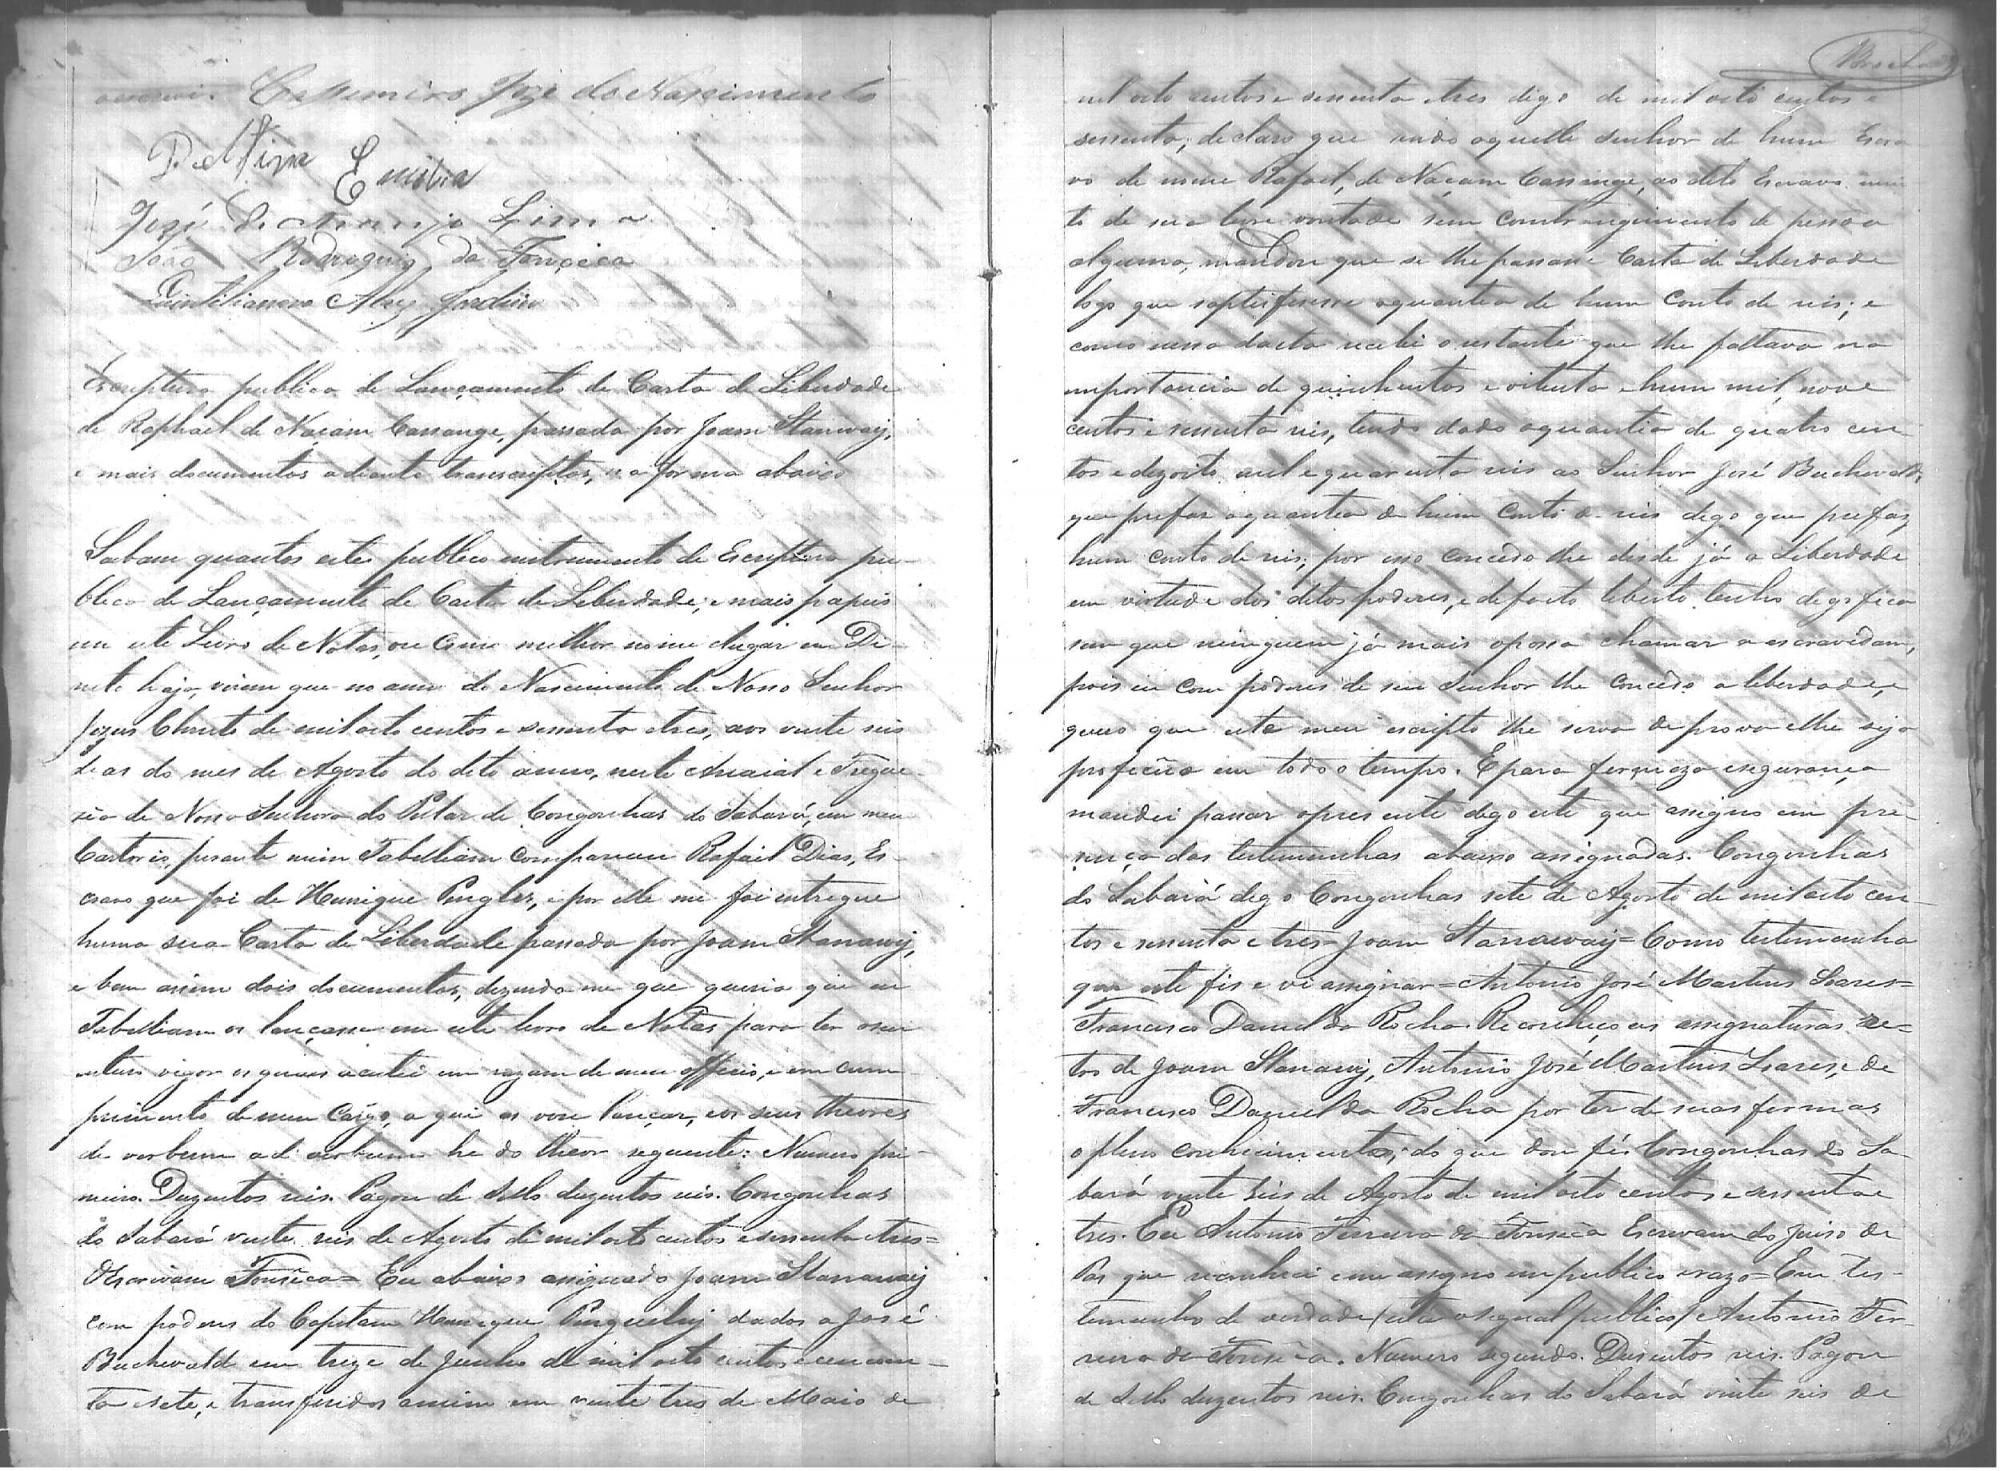 escrevi. Cassemiro Joze do Nascimento
Delfina Emilia
José de Araujo Lima
João Rodrigues da Fonçeca
Quintilianno Alvz Jardim
Escriptura publica de Lançamento de Carta de Liberdade
de Raphael de Naçam Cassange, passada por Joam Stanaway,
e mais documentos adiante transcriptos, na forma abaixo
Saibam quantos este publico instrumento de Escriptura pu-
blica de Lançamento de Carta de Liberdade, e mais papeis
em este Livro de Notas, ou como melhor nome e lugar em Di-
reito haja, virem que no anno do Nascimento de Nosso Senhor
Jezus Christo de mil oito centos e sessenta e tres, aos vinte seis
dias do mes de Agosto do dito anno, neste Arraial e Fregue-
sia de Nossa Senhora do Pilar de Congonhas do Sabará, em meu
Cartorio, perante mim Tabelliam compareceu Rafael Dias, Es-
cravo que foi de Henrique Pingles, e por elle me foi entregue
huma sua Carta de Liberdade passada por Joam Stanaway,
e bem assim dois documentos, dizendo me que queria que eu
Tabelliam os lançasse em este livro de Notas para ter o seu
inteiro vigor os quaes aceitei em razam de meu officio, e em cum-
primento de meu Cargo, a qui os vou lançar, cos seus theores
de verbum ad verbum he do theor seguinte: Numero pri-
meiro. Duzentos reis. Pagou de Sello duzentos reis. Congonhas
do Sabará vinte seis de Agosto de mil oito centos e sessenta e tres=
O Escrivam Fonseca= Eu abaixo assignado Joam Stanaway
com poderes do Capitam Henrique Pinguelly dados a José
Buchevald em treze de Junho de mil oito centos e cincoen-
ta e sete, e transferidos a mim em vinte tres de Maio de
mil oito centos e sessenta e tres digo de mil oito centos e
sessenta; declaro que sendo aquelle senhor de hum Escra
vo de nome Rafael, de Naçam Cassange, ao dito Escravo mui-
to de sua livre vontade sem constrangimento de pessoa
alguma, mandou que se lhe passasse Carta de Liberdade
logo que satisfisesse a quantia de hum Conto de reis; e
como nessa data recebi o restante que lhe faltava na
importancia de quinhentos e oitenta e hum mil, nove
centos e sessenta reis, tendo dado a quantia de quatro cen-
tos e dezoito mil e quarenta reis ao Senhor José Buchevald,
que prefaz a quantia de hum conto de reis digo que prefaz
hum conto de reis; por isso concedo lhe desde já a Liberdade
em virtude dos ditos poderes, e de facto liberto tenho digo fica
sem que ninguem já mais o possa chamar a escravidam,
pois eu com poderes de seu Senhor lhe concedo a liberdade, e
quero que este meu escripto lhe serva de prova e lhe seja
proficúo em todo o tempo. E para firmeza e segurança
mandei passar o presente digo este que assigno em pre-
sença das testemunhas abaixo assignadas. Congonhas
do Sabará digo Congonhas sete de Agosto de mil oito cen-
tos e sessenta e tres= Joam Stanaway= Como testemunha
que este fis e vi assignar= Antonio José Martins Soares=
Francisco Daniel da Rocha. Reconheço as assignaturas re-
tos de Joam Stanaway, Antonio José Martins Soares, e de
Francisco Daniel da Rocha por ter de suas formas
o pleno conhecimento; do que dou fé. Congonhas do Sa-
bará vinte seis de Agosto de mil oito centos e sessenta e
tres. Eu Antonio Ferreira da Fonseca Escrivam do Juiso de
Pas que reconheci e me assigno em publico e razo= Em tes-
temunho de verdade (está o signal publico) Antonio Fer-
reira da Fonseca. Numero segundo. Dusentos reis. Pagou
de Sello duzentos reis. Congonhas do Sabará vinte seis de